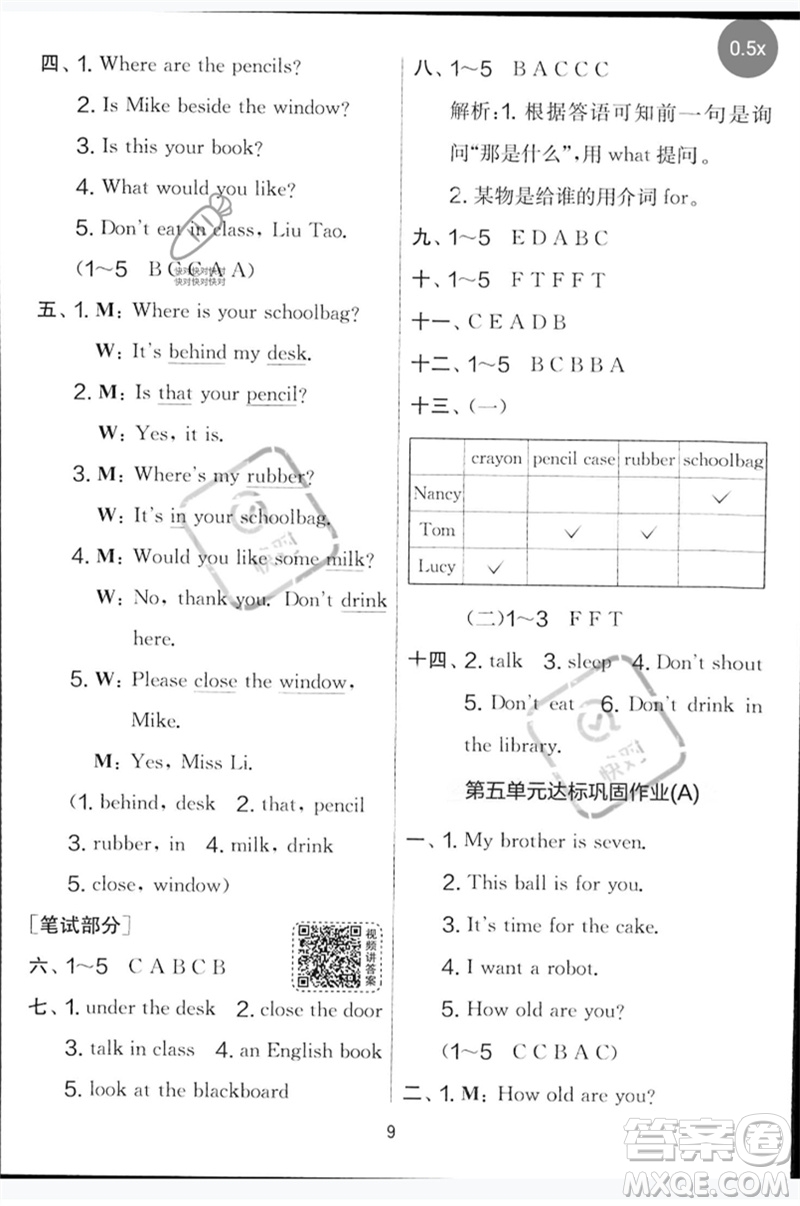 0.5x
四、1. Where are the pencils?
2. Is Mike beside the window?
3. Is this your book?
4. What would you like?
5. Don't eat in class, Liu Tao.
(1～5 B C C A A)
快对快对快对
快对快对快对
五、1. M: Where is your schoolbag?
W: It's behind my desk.
2. M: Is that your pencil?
W: Yes, it is.
3. M: Where's my rubber?
W: It's in your schoolbag.
4. M: Would you like some milk?
W: No, thank you. Don't drink
here.
5. W: Please close the window,
Mike.
M: Yes, Miss Li.
(1. behind, desk 2. that, pencil
3. rubber, in 4. milk, drink
5. close, window)
[笔试部分]
视频讲答案
六、1～5 C A B C B
七、1. under the desk 2. close the door
3. talk in class 4. an English book
5. look at the blackboard
八、1～5 B A C C C
解析:1. 根据答语可知前一句是询
问“那是什么”,用 what 提问。
2. 某物是给谁的用介词 for。
九、1～5 E D A B C
十、1～5 F T F F T
十一、C E A D B
十二、1～5 B C B B A
十三、(一)
crayon pencil case rubber schoolbag
Nancy ✓
Tom ✓ ✓
Lucy ✓
(二)1～3 F F T
十四、2. talk 3. sleep 4. Don't shout
5. Don't eat 6. Don't drink in
the library.
第五单元达标巩固作业(A)
一、1. My brother is seven.
2. This ball is for you.
3. It's time for the cake.
4. I want a robot.
5. How old are you?
(1～5 C C B A C)
二、1. M: How old are you?
9
答案卷
MXQE.COM